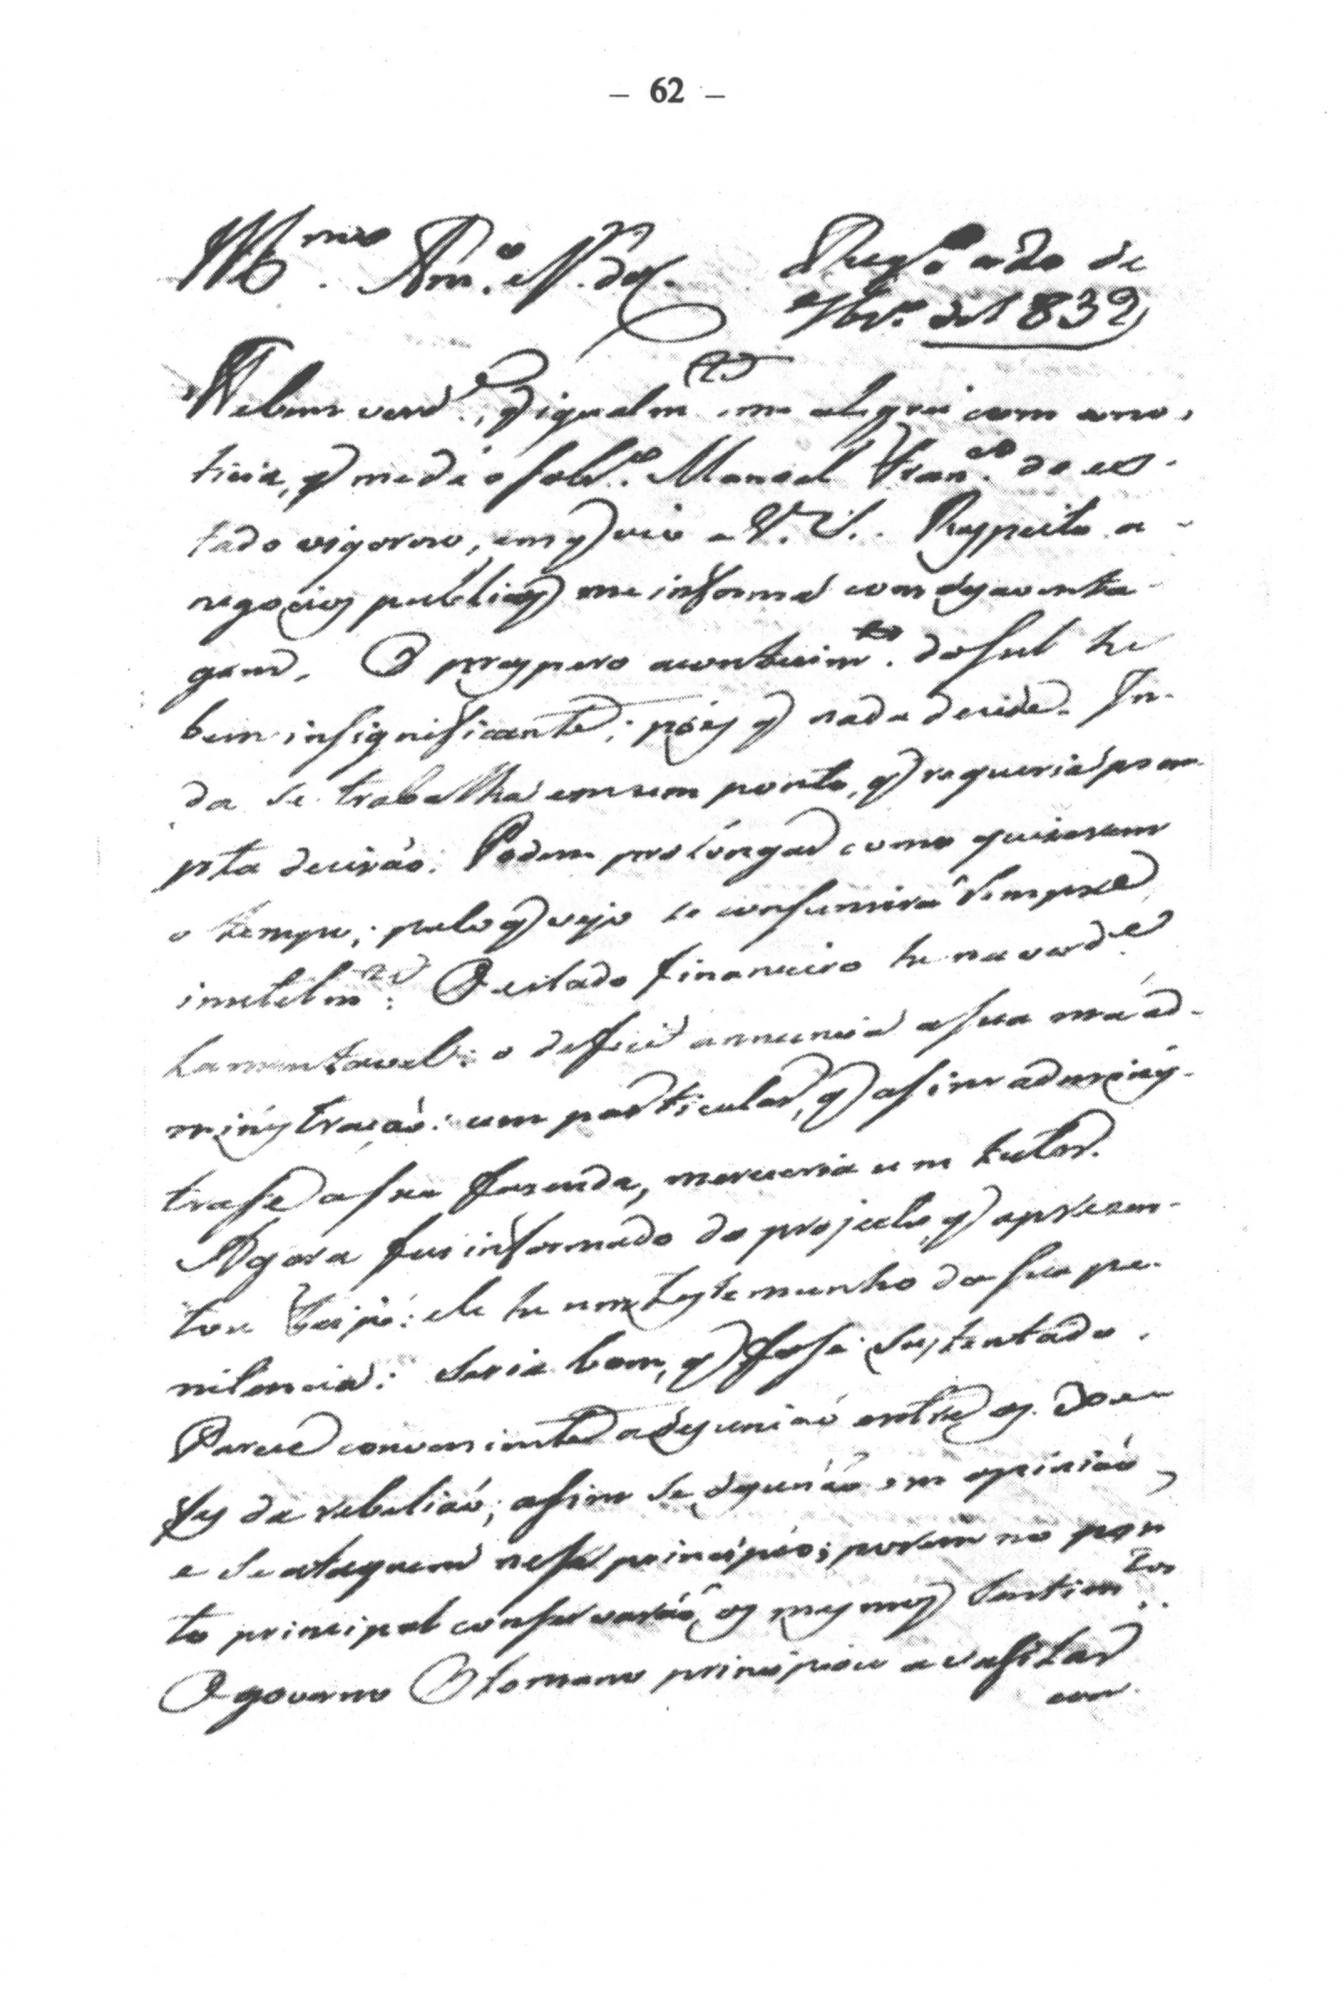 – 62 –
Am.º e Sr. do C.
de
9br.º de 1832
He bem verd.e, q igualm.te me alegrei com a no-
ticia, q me dá o sobr.º Manoel Fran.co do es-
tado vigoroso, em q vio a V. S. Respeito a
negocios publicos me informa com desavanta-
gem. O prospero acontecim.to do sul he
bem insignificante; pois q nada decide. In-
da se trabalha em um ponto, q requeria prom-
pta decisão. Podem prolongar como quizerem
o tempo; pelo q vejo se consumirá sempre
inutilm.te O estado financeiro he na verd.e
lamentavel: o deficit annuncia a sua má ad-
ministração: um particular, q assim adminis-
trasse a sua fazenda, mereceria um tutor.
Agora fui informado do projecto, q aprezen-
tou Feijó: ele he um testemunho da sua pe-
nitencia: seria bom, q fosse sustentado.
Parece conveniente a desunião entre os
da rebelião; assim se desunão em opinião,
e se ataquem nesse principio; porem no pon
to principal conservarão os mesmos sentim.tos
O governo Otomano principiou a vasilar
com